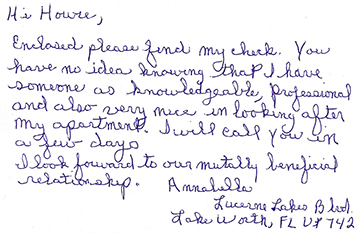 Hi Howie,
Enclosed please find my check. You
have no idea knowing that I have
someone as knowledgeable, professional
and also very nice in looking after
my apartment. I will call you in
a few days
I look forward to our mutally beneficial
relationship. Annabella
Lucerne Lakes Blvd.
Lake Worth, FL